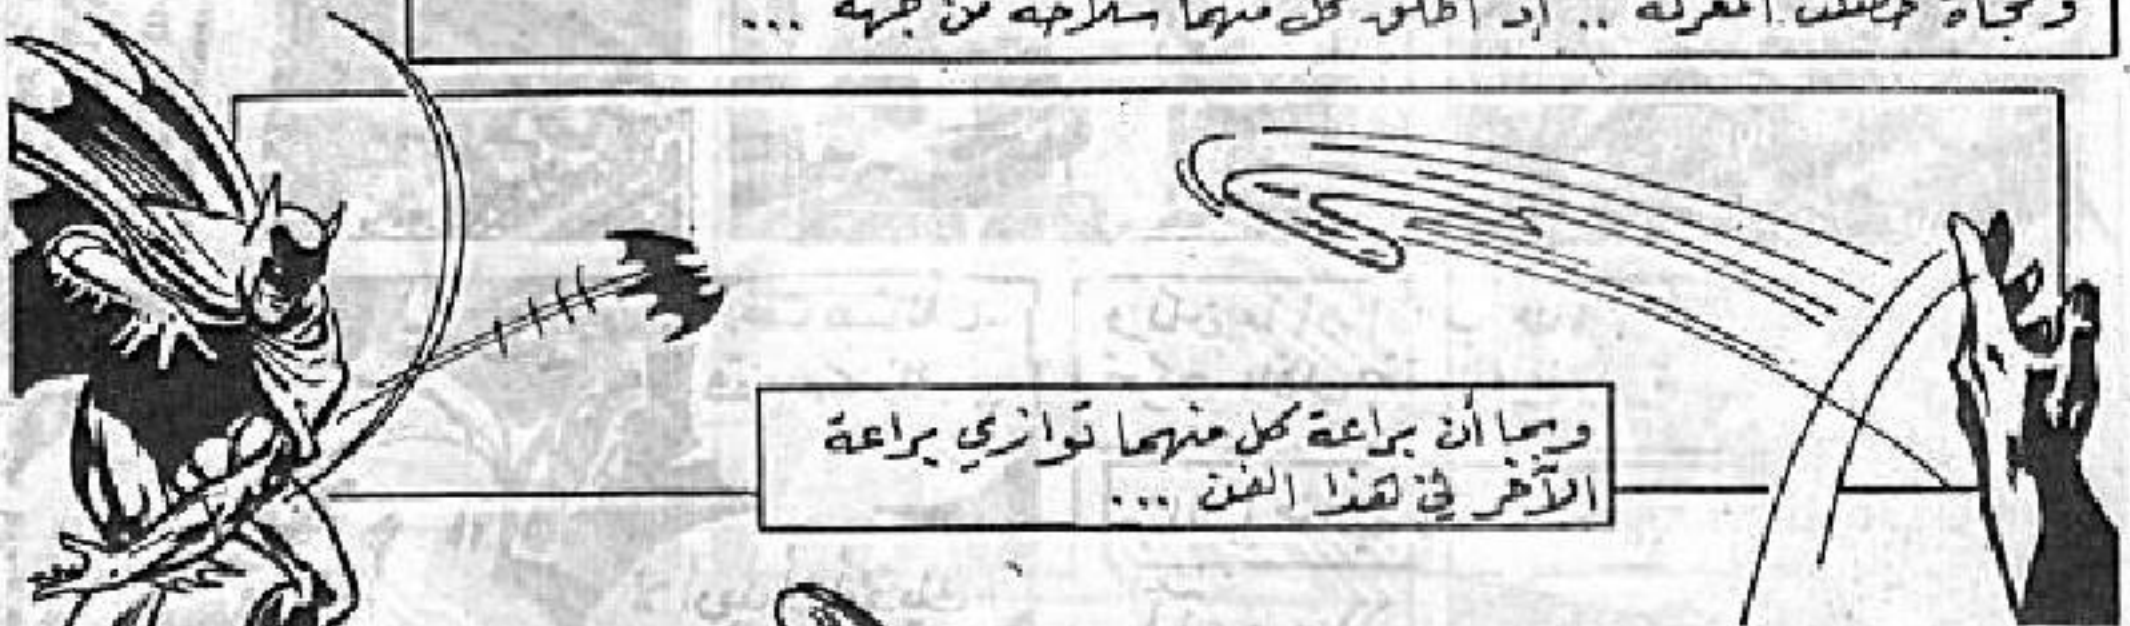 وفجأة حصلت المعركة .. إذ أطلق كل منهما سلاحه من جهة ...
وبما أن براعة كل منهما توازي براعة
الآخر في هذا الفن ...